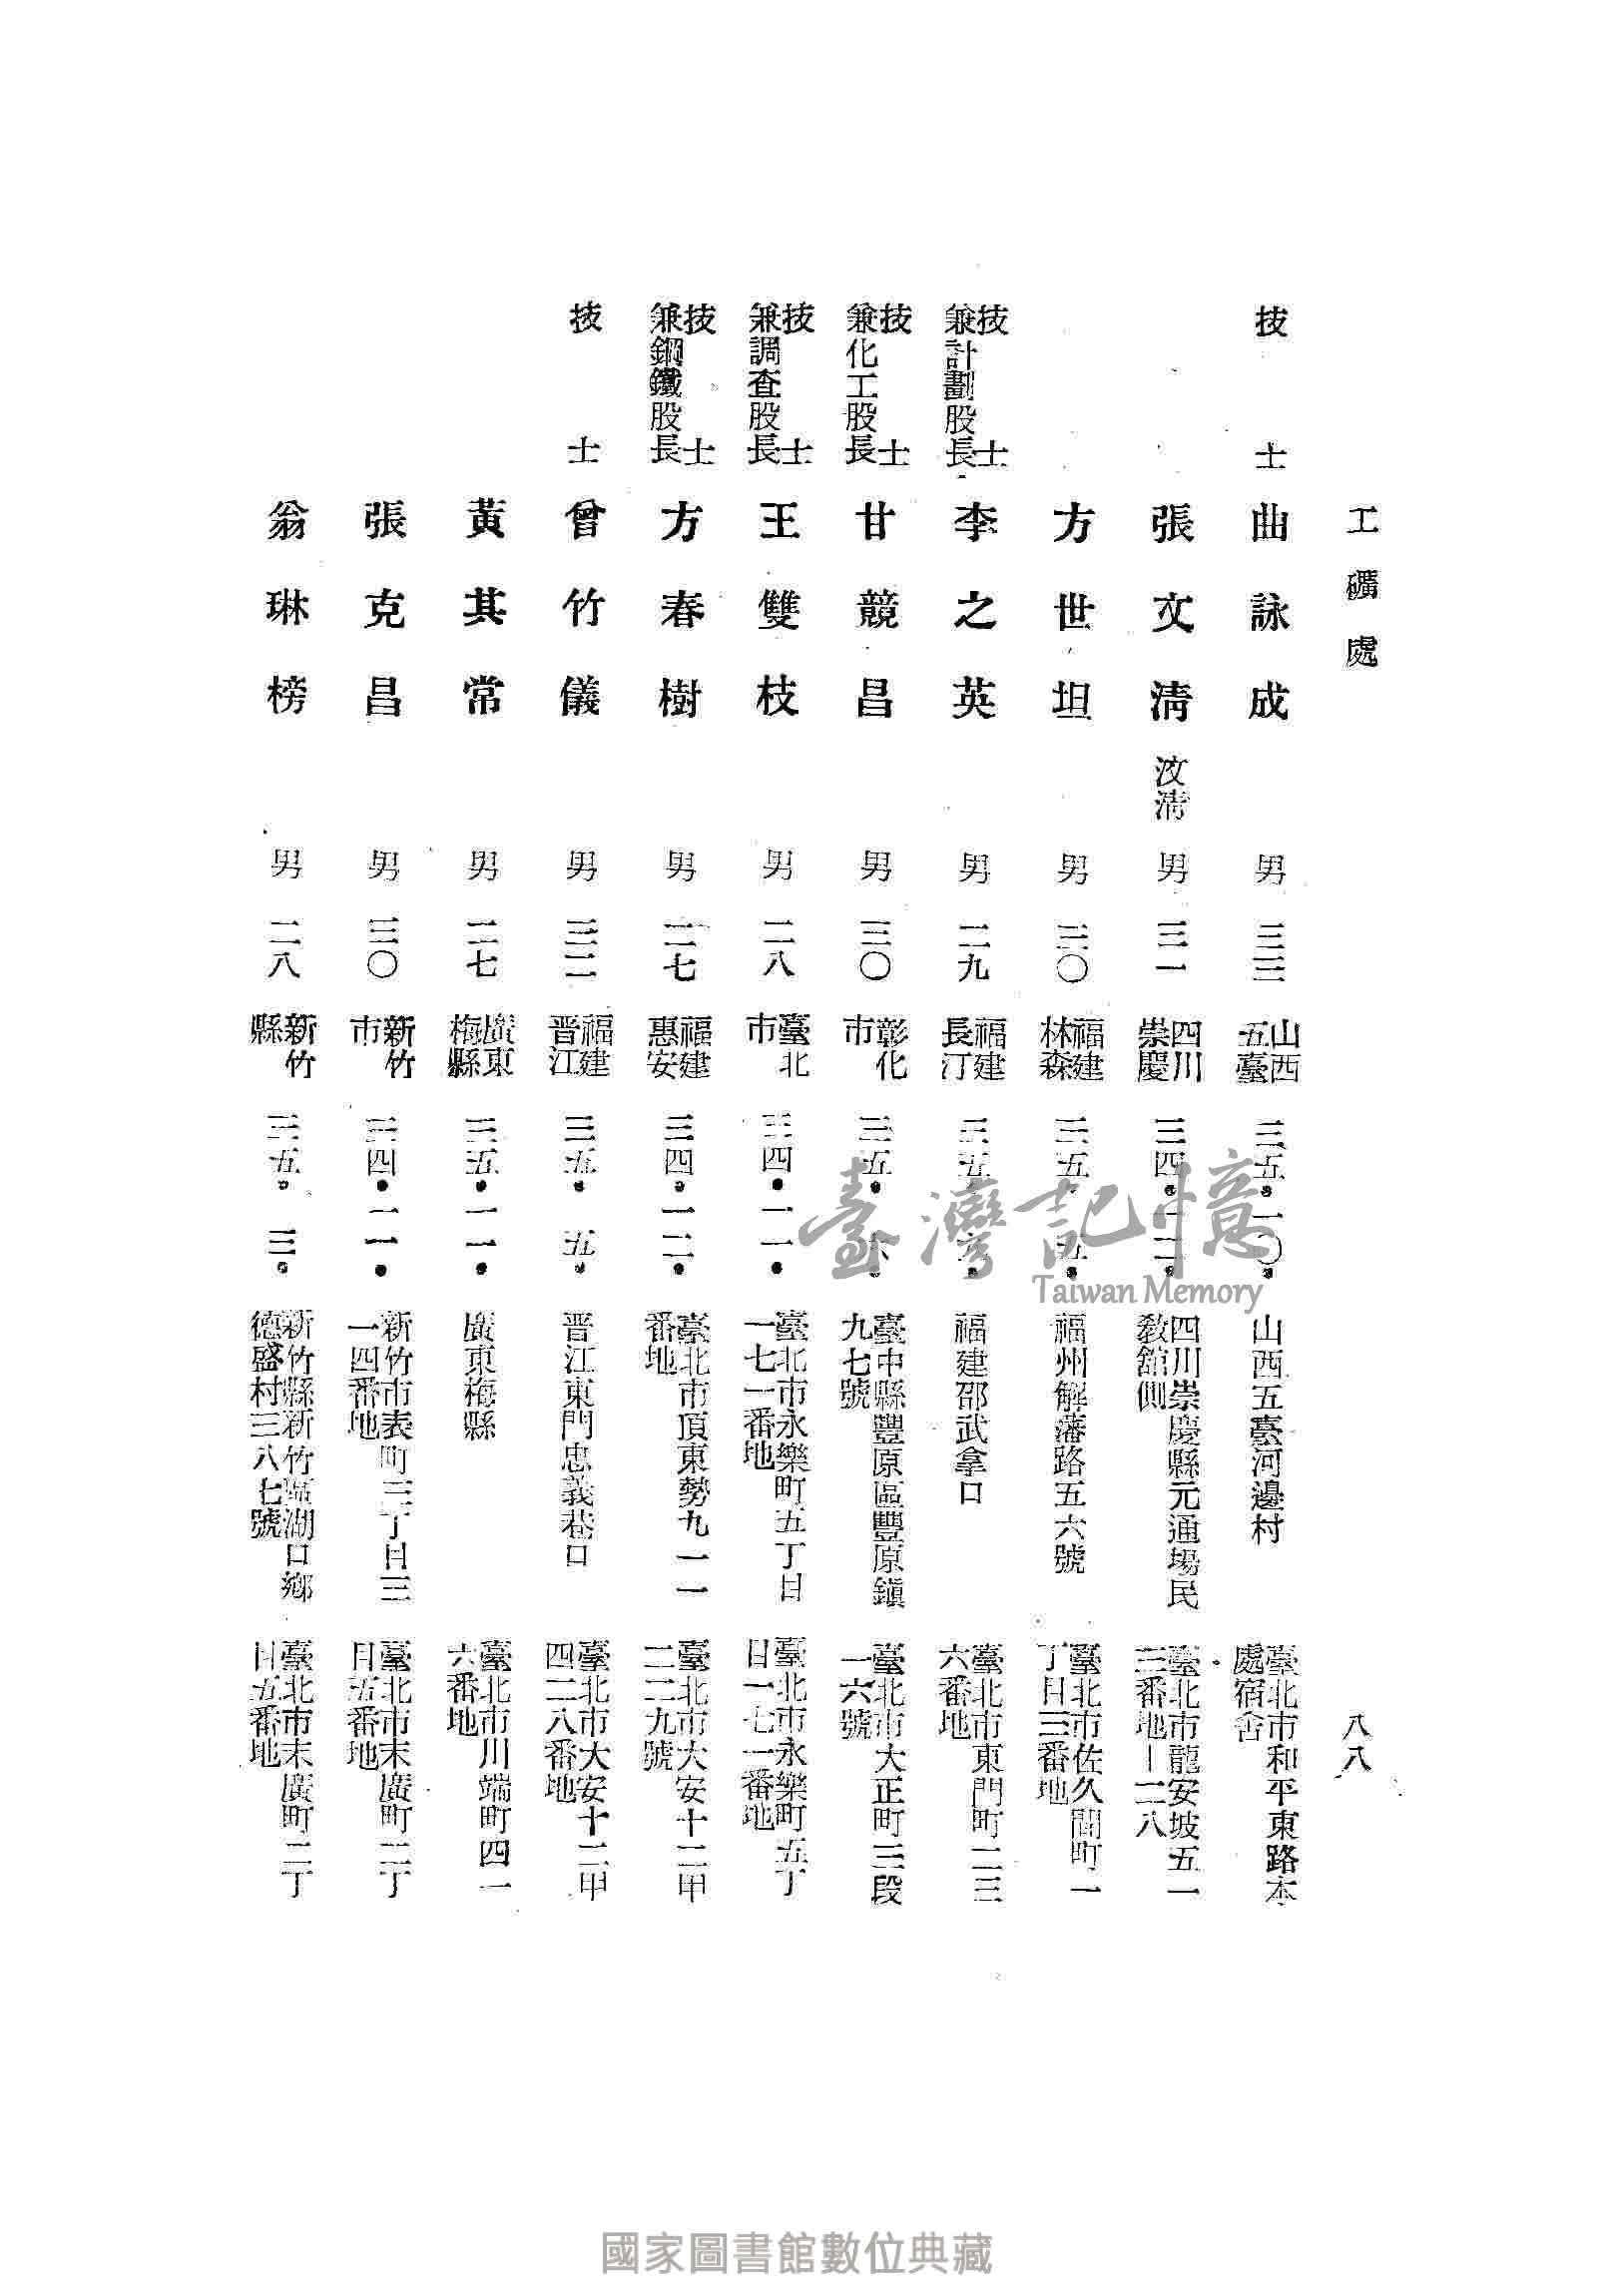 工礦處
八八
技士 曲詠成 男 三三 山西五臺 三五・一〇・ 山西五臺河邊村 臺北市和平東路本處宿舍
張文清 汶清 男 三一 四川崇慶 三四・一二・ 四川崇慶縣元通場民教舘側 臺北市龍安坡五一三番地—二八
方世坦 男 三〇 福建林森 三五・五・ 福州解藩路五六號 臺北市佐久間町一丁目三番地
技士兼計劃股長 李之英 男 二九 福建長汀 三五・六・ 福建邵武拿口 臺北市東門町二三六番地
技士兼化工股長 甘競昌 男 三〇 彰化市 三五・六・ 臺中縣豐原區豐原鎮九七號 臺北市大正町三段一六號
技士兼調查股長 王雙枝 男 二八 臺北市 三四・一一・ 臺北市永樂町五丁目一七一番地 臺北市永樂町五丁目一七一番地
技士兼鋼鐵股長 方春樹 男 二七 福建惠安 三四・一二・ 臺北市頂東勢九一一番地 臺北市大安十二甲二二九號
技士 曾竹儀 男 三二 福建晋江 三五・五・ 晋江東門忠義巷口 臺北市大安十二甲四二八番地
黃其常 男 二七 廣東梅縣 三五・一一・ 廣東梅縣 臺北市川端町四一六番地
張克昌 男 三〇 新竹市 三四・一一・ 新竹市表町三丁目三一四番地 臺北市末廣町二丁目五番地
翁琳榜 男 二八 新竹縣 三五・三・ 新竹縣新竹區湖口鄉德盛村三八七號 臺北市末廣町二丁目五番地
臺灣記憶
Taiwan Memory
國家圖書館數位典藏